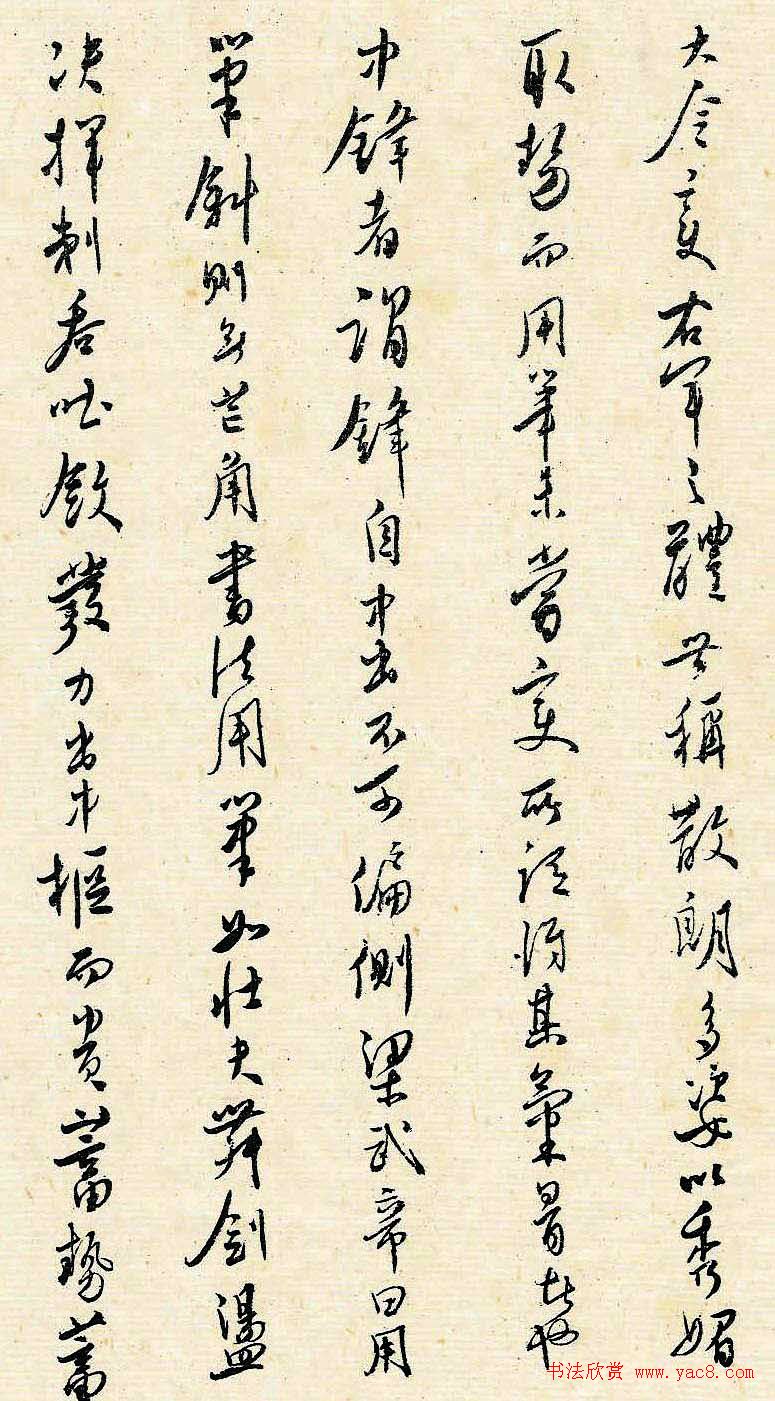 大令变右軍之體世稱散朗多姿以秀媚
取勢而用筆未嘗变所得其氣骨也
中鋒者謂鋒自中出不可偏側梁武帝曰用
筆斜則無芒角書法用筆如壯夫舞劍盪
决揮刺吞吐斂發力出中樞而貴蓄勢蓄
书法欣赏 www.yac8.com